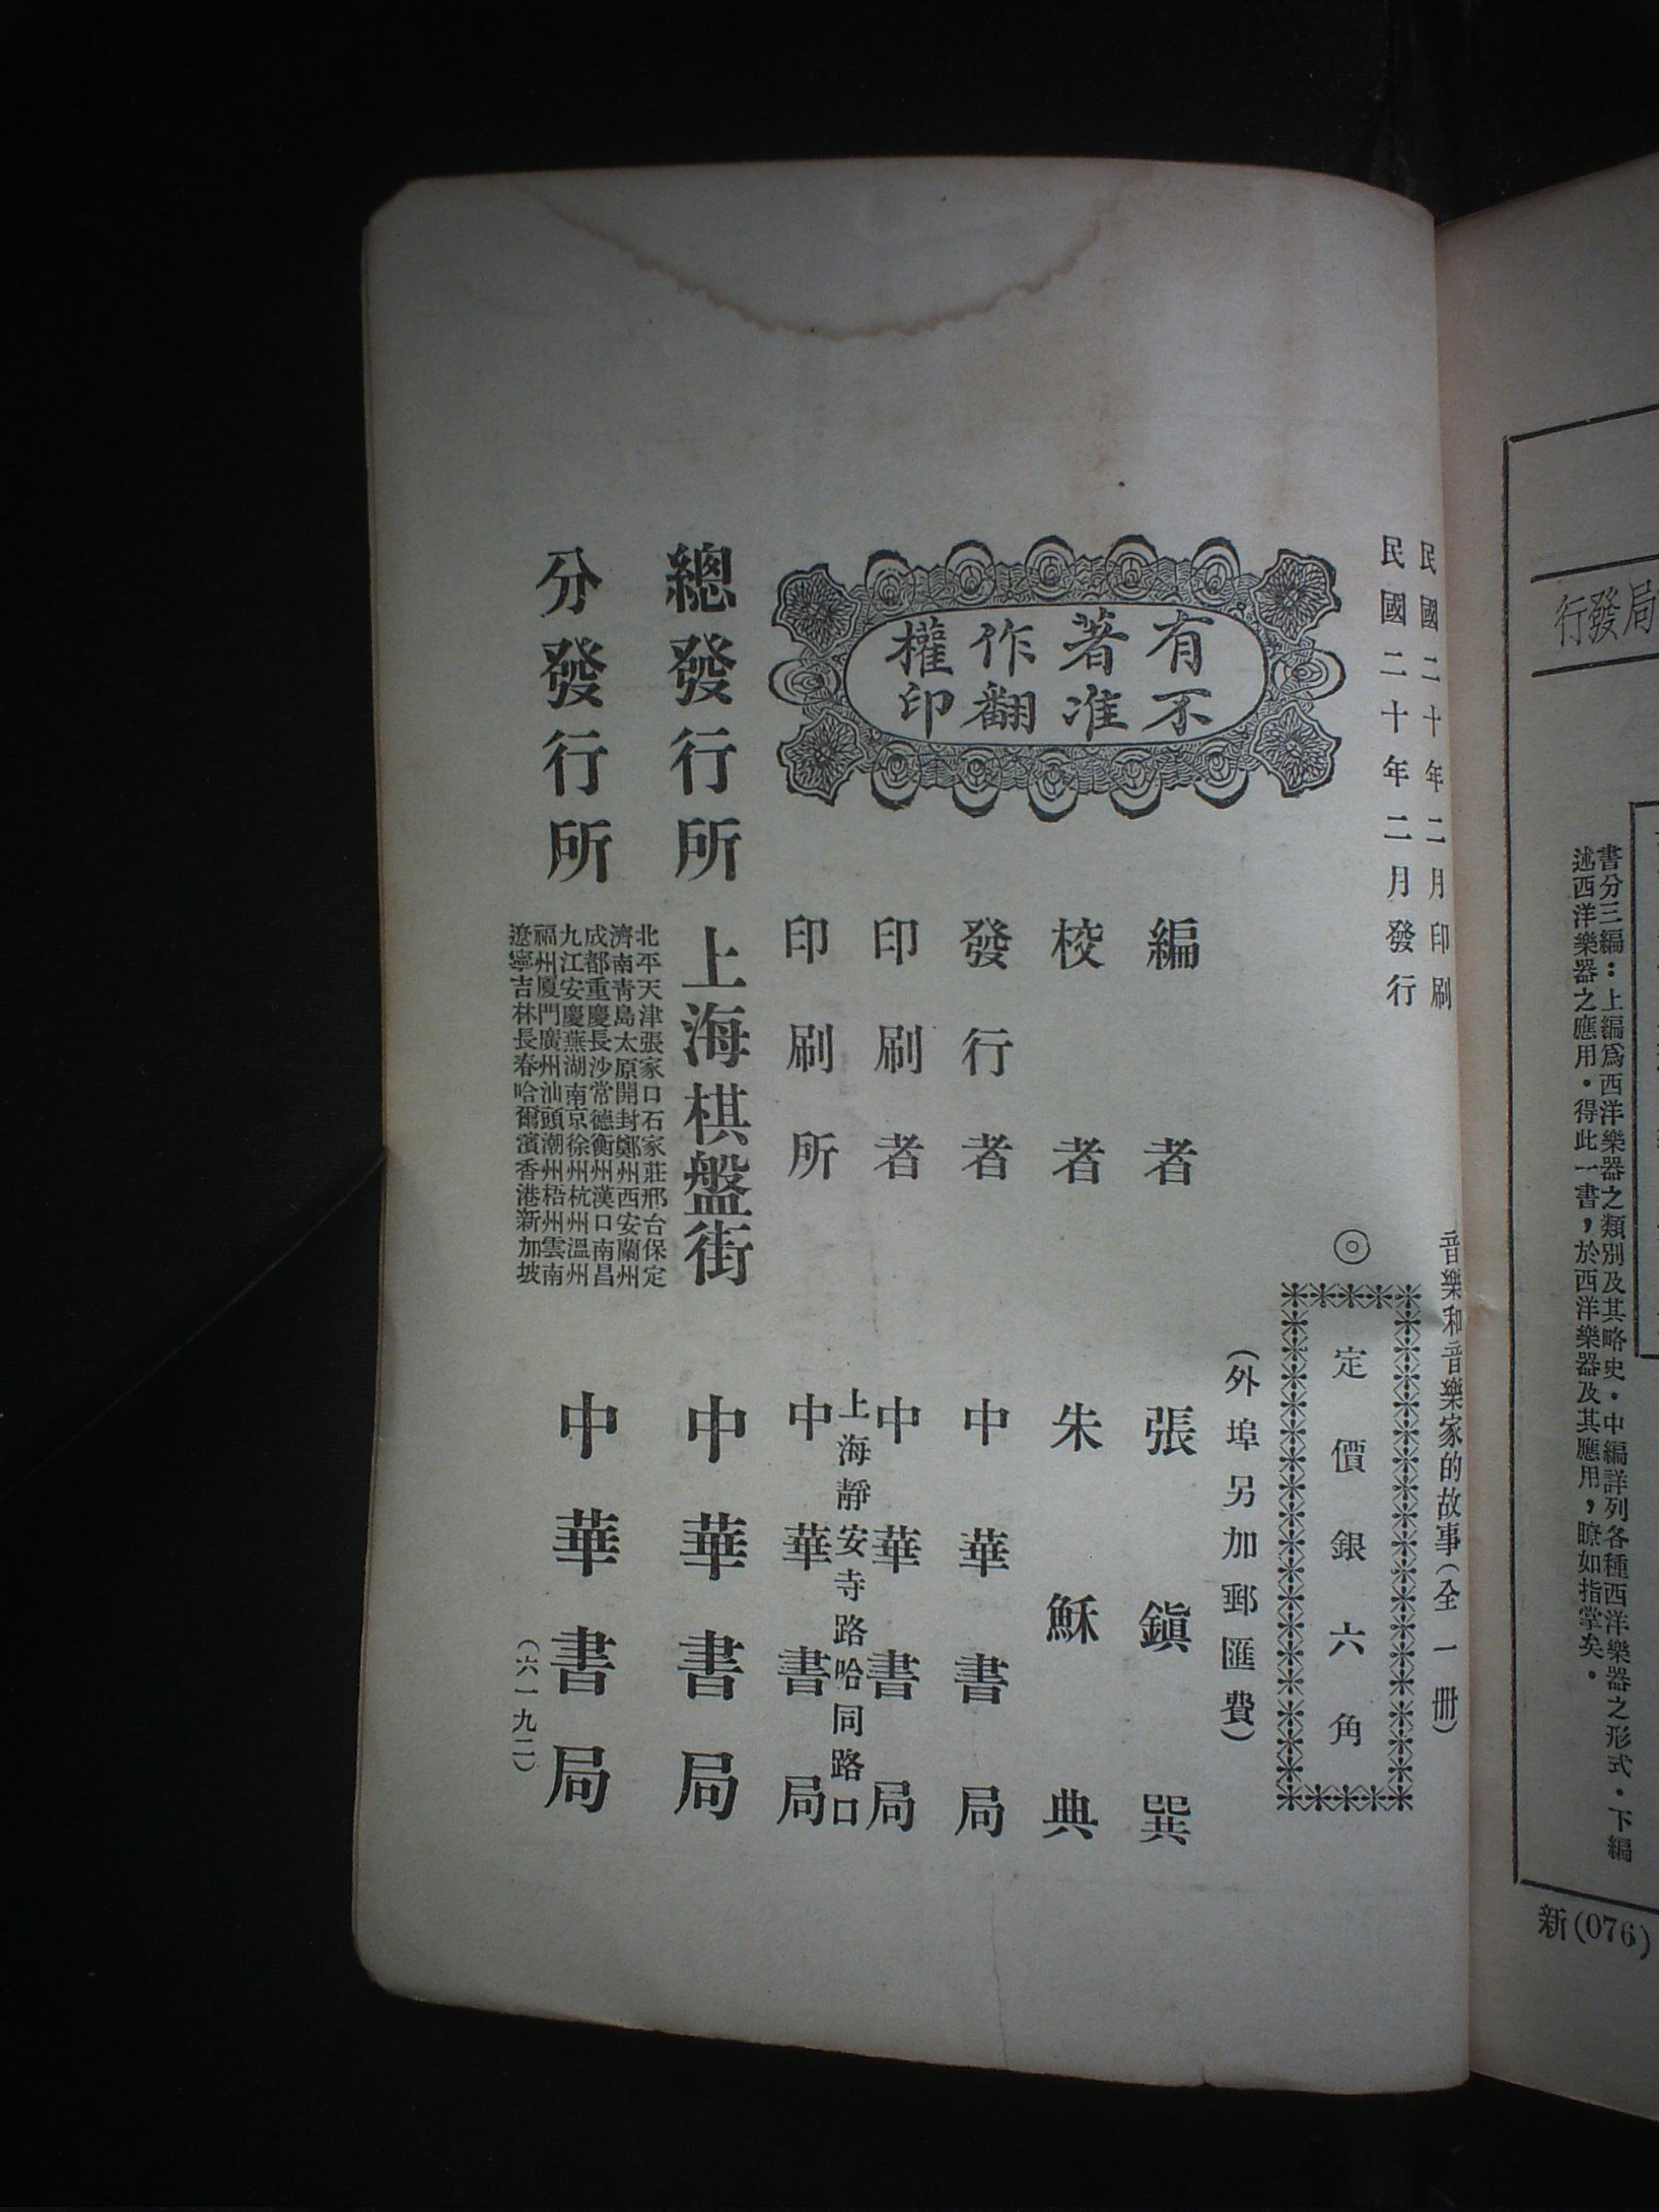 民國二十年二月印刷
民國二十年二月發行
音樂和音樂家的故事(全一冊)
◎定價銀六角
(外埠另加郵匯費)
有不
著准
作翻
權印
編者 張鎭巽
校者 朱穌典
發行者 中華書局
印刷者 中華書局
上海靜安寺路哈同路口
印刷所 中華書局
總發行所 上海棋盤街 中華書局
分發行所 中華書局
北平天津張家口石家莊邢台保定
濟南青島太原開封鄭州西安蘭州
成都重慶長沙常德衡州漢口南昌
九江安慶蕪湖南京徐州杭州溫州
福州厦門廣州汕頭潮州梧州雲南
遼寧吉林長春哈爾濱香港新加坡
(六一九二)
局發行
書分三編:上編爲西洋樂器之類別及其略史.中編詳列各種西洋樂器之形式.下編
述西洋樂器之應用.得此一書,於西洋樂器及其應用,瞭如指掌矣.
新(076)